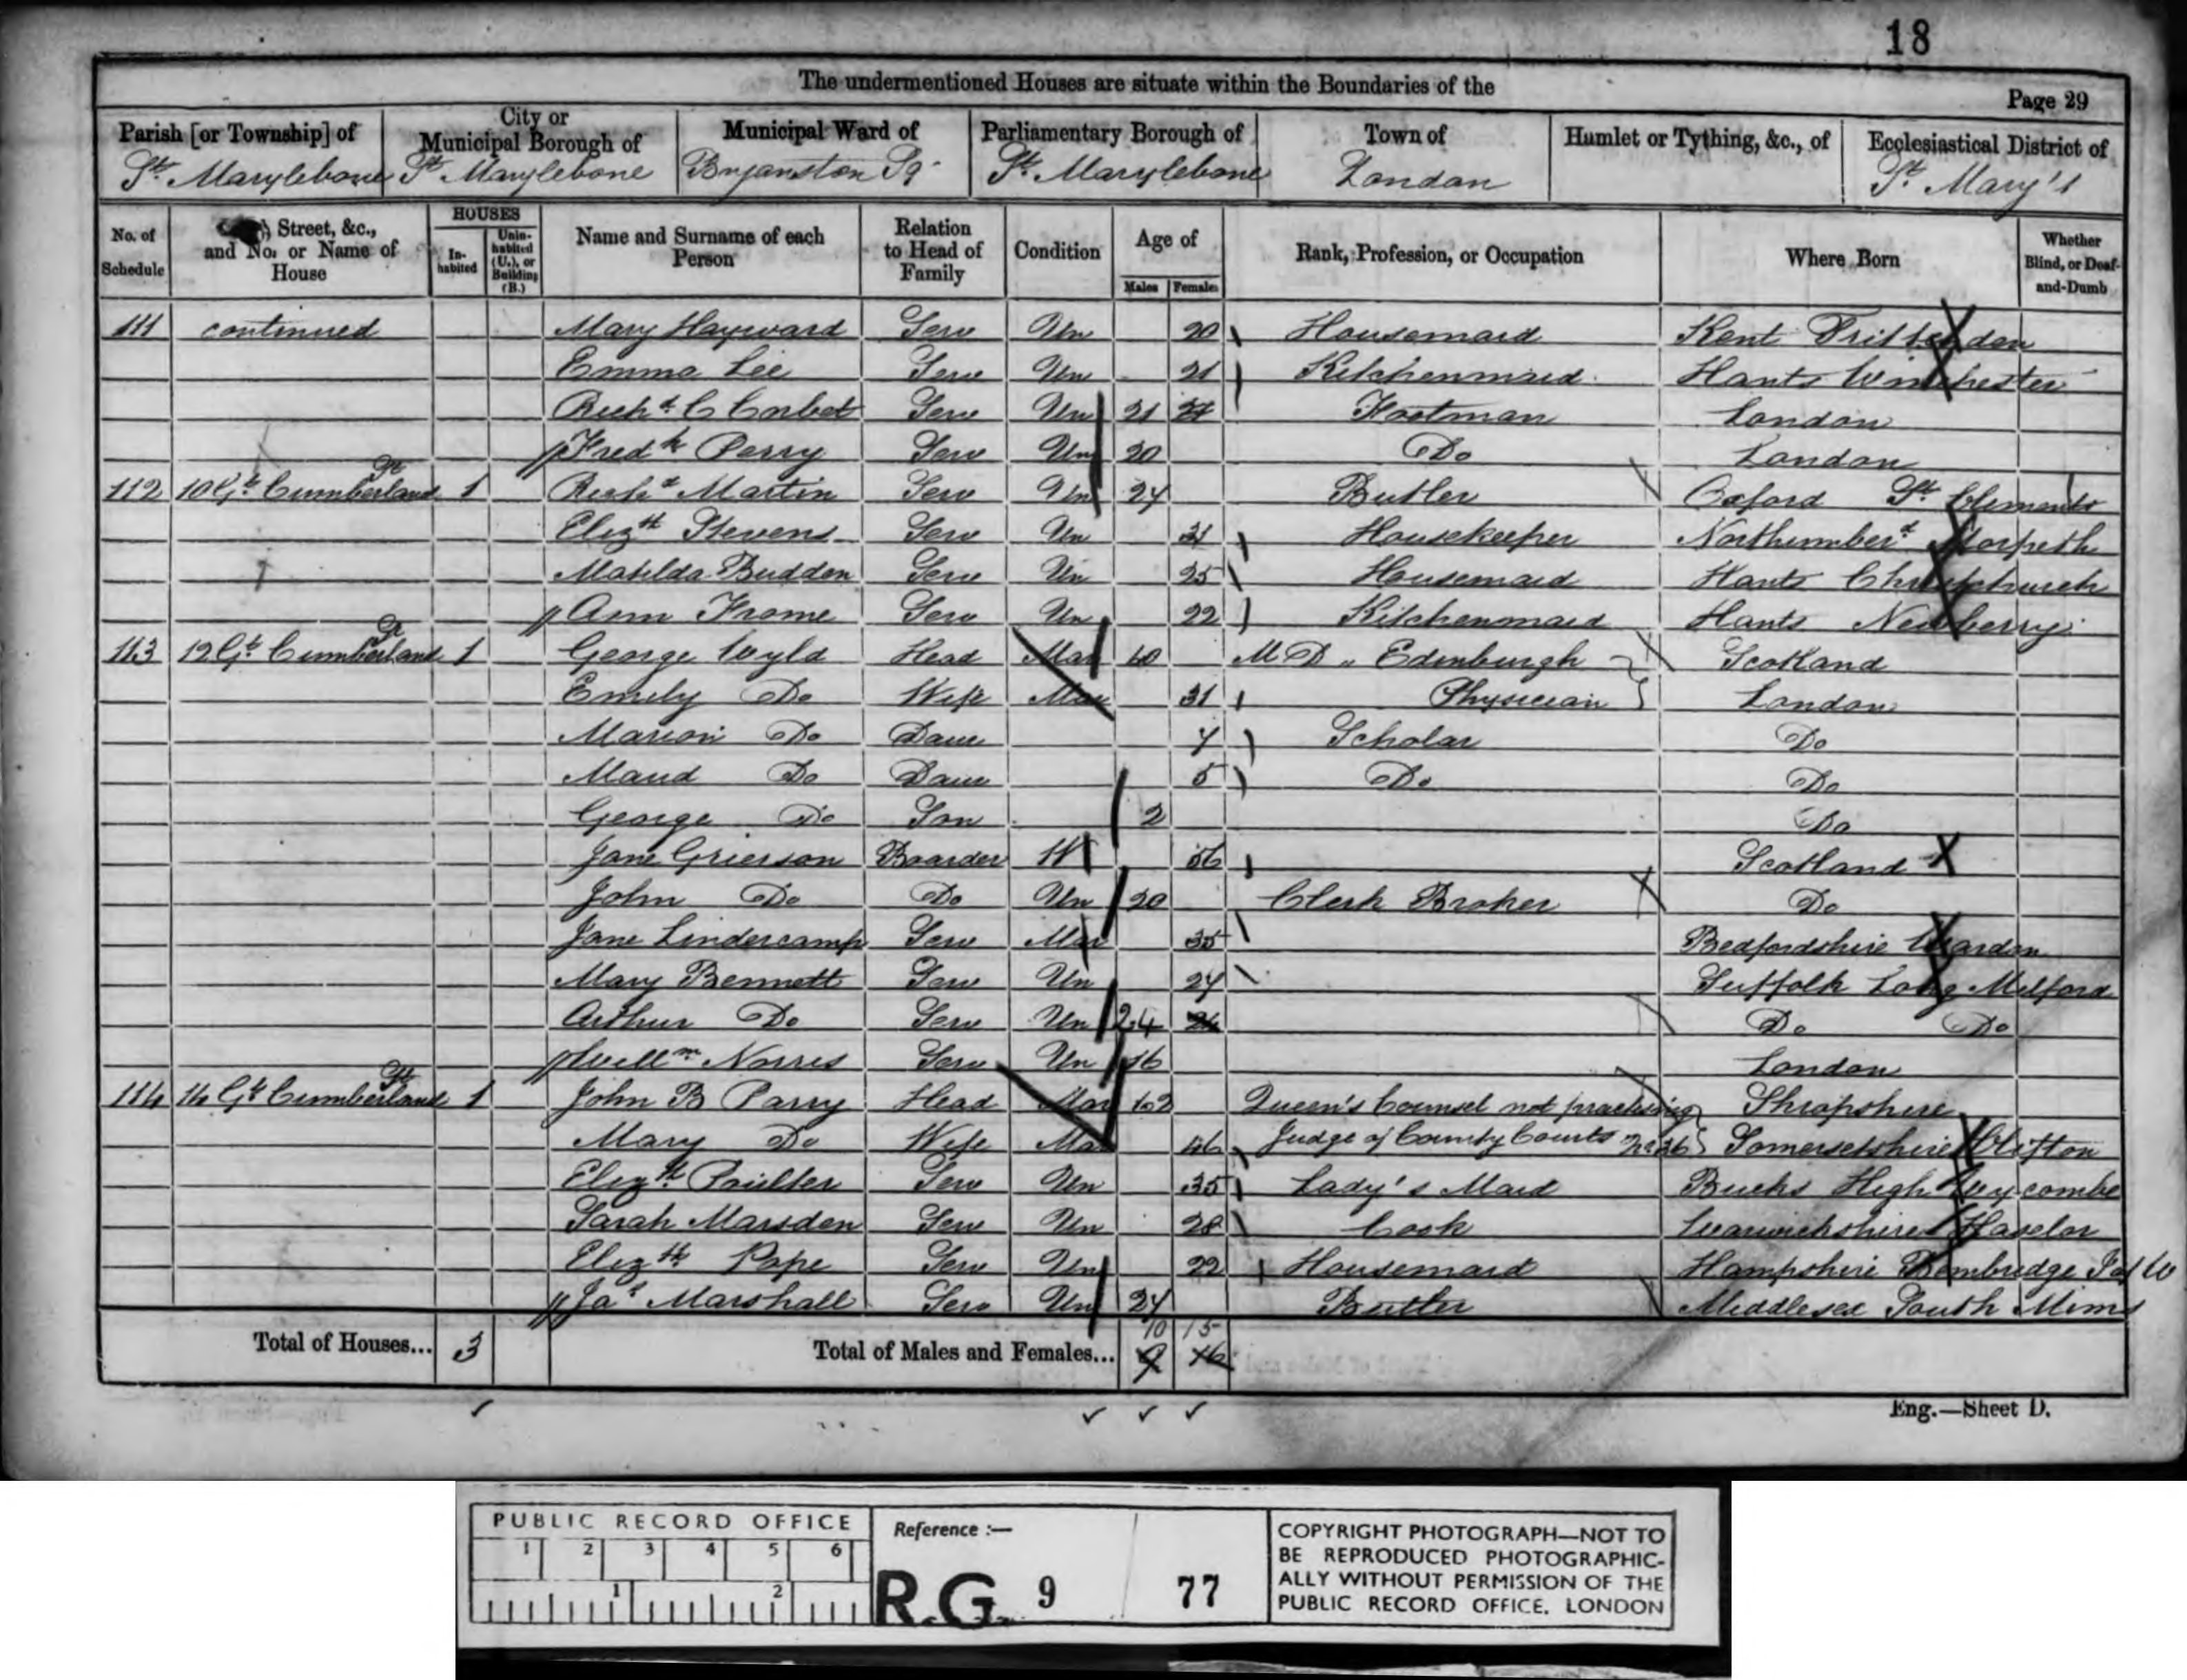 18
The undermentioned Houses are situate within the Boundaries of the
Page 29
Parish [or Township] of City or Municipal Borough of Municipal Ward of Parliamentary Borough of Town of Hamlet or Tything, &c., of Ecclesiastical District of
St. Marylebone St. Marylebone Bryanston Sq St. Marylebone London St. Mary's
No. of Schedule Street, &c., and No. or Name of House HOUSES In-habited Unin-habited (U.), or Building (B.) Name and Surname of each Person Relation to Head of Family Condition Age of Males Females Rank, Profession, or Occupation Where Born Whether Blind, or Deaf-and-Dumb
111 continued Mary Hayward Serv Un 20 Housemaid Kent Frittenden
Emma Lee Serv Un 21 Kitchenmaid Hants Winchester
Richd. C Corbet Serv Un 21 Footman London
Fredk Perry Serv Un 20 Do London
112 10 Gt. Cumberland St 1 Richd Martin Serv Un 24 Butler Oxford St. Clements
Elizth Stevens Serv Un 31 Housekeeper Northumberd Morpeth
Matilda Budden Serv Un 25 Housemaid Hants Christchurch
Ann Frome Serv Un 22 Kitchenmaid Hants Newberry
113 12 Gt. Cumberland St 1 George Wyld Head Mar 40 M D " Edinburgh Scotland
Emily Do Wife Mar 31 Physician London
Marion Do Daur 7 Scholar Do
Maud Do Daur 5 Do Do
George Do Son 2 Do
Jane Grierson Boarder W 56 Scotland
John Do Do Un 20 Clerk Broker Do
Jane Lindercamp Serv Mar 35 Bedfordshire Wardon
Mary Bennett Serv Un 24 Suffolk Long Melford
Arthur Do Serv Un 24 Do Do
Willm Norris Serv Un 16 London
114 14 Gt Cumberland St 1 John B Parry Head Mar 62 Queen's Counsel not practising Shropshire
Mary Do Wife Mar 46 Judge of County Courts No 36 Somersetshire Clifton
Elizth Serv Un 35 Lady's Maid Bucks High Wycombe
Sarah Marsden Serv Un 28 Cook Warwickshire Haselor
Elizth Pope Serv Un 22 Housemaid Hampshire Bembridge I of W
Jas Marshall Serv Un 24 Butler Middlesex South Mims
10 15
Total of Houses... 3 Total of Males and Females... 9 16
Eng.—Sheet D.
PUBLIC RECORD OFFICE
1 2 3 4 5 6
1 2
Reference :—
R.G. 9 77
COPYRIGHT PHOTOGRAPH—NOT TO
BE REPRODUCED PHOTOGRAPHIC-
ALLY WITHOUT PERMISSION OF THE
PUBLIC RECORD OFFICE. LONDON